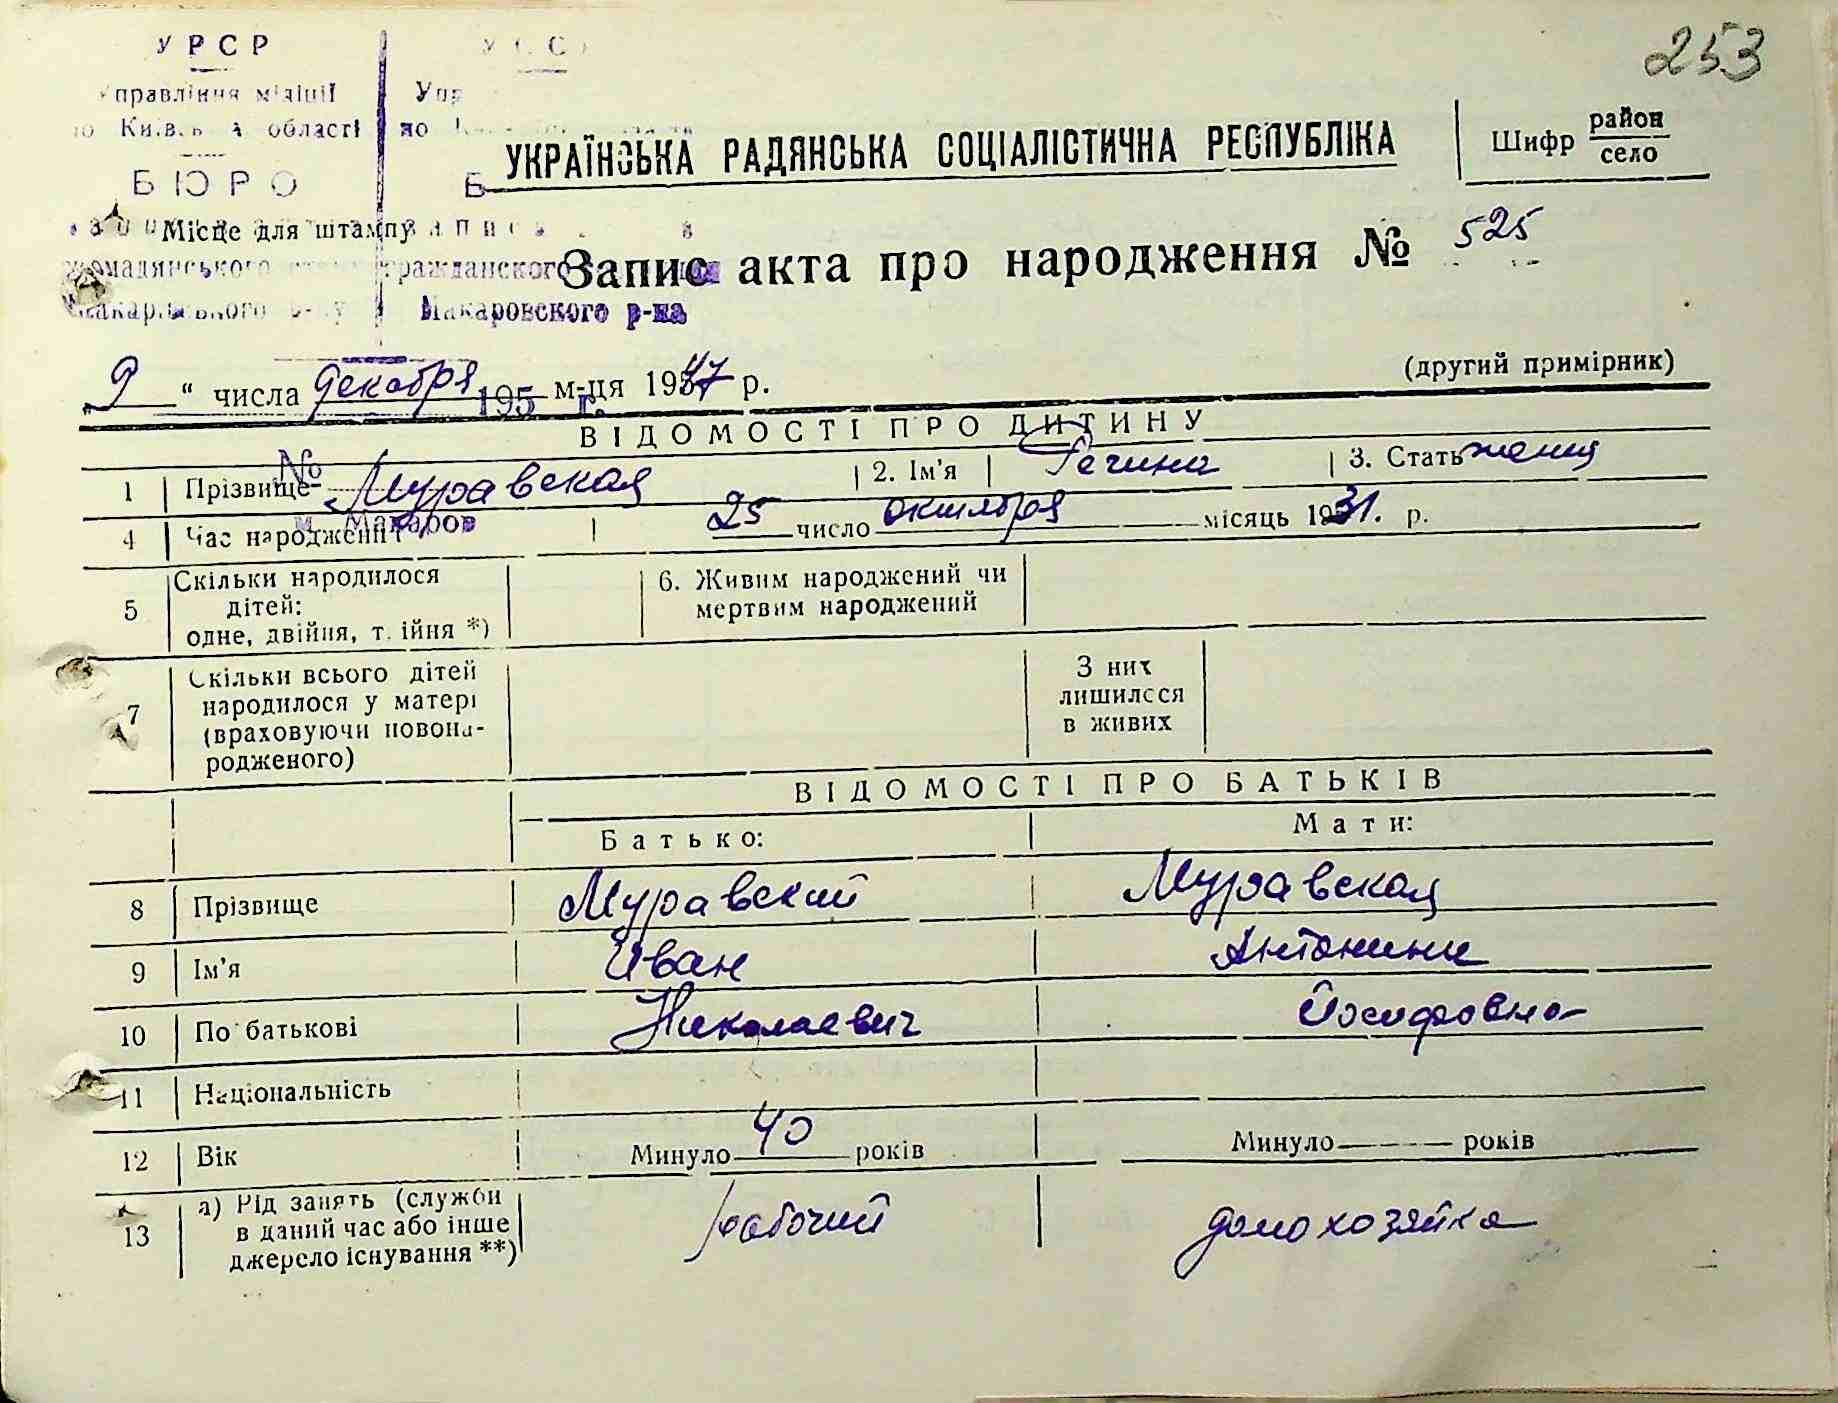 253
УРСР
Управління міліції
по Київській області по
БЮРО
УКРАЇНСЬКА РАДЯНСЬКА СОЦІАЛІСТИЧНА РЕСПУБЛІКА
Шифр район
село
Місце для штампу
громадянського гражданского
Макаровского р-на
Запис акта про народження № 525
(другий примірник)
„ 9 “ числа декабря м-ця 1947 р.
195 г.
ВІДОМОСТІ ПРО ДИТИНУ
№
1 Прізвище Муравская 2. Ім'я Регина 3. Стать женщ
м. Макаров
4 Час народження 25 число октября місяць 1931. р.
5 Скільки народилося
дітей:
одне, двійня, трійня *)
6. Живим народжений чи
мертвим народжений
7 Скільки всього дітей
народилося у матері
(враховуючи новона-
родженого)
З них
лишилося
в живих
ВІДОМОСТІ ПРО БАТЬКІВ
Батько: Мати:
8 Прізвище Муравский Муравская
9 Ім'я Иван Антонина
10 По батькові Николаевич Иосифовна
11 Національність
12 Вік Минуло 40 років Минуло років
13 а) Рід занять (служби
в даний час або інше
джерело існування **)
рабочий домохозяйка